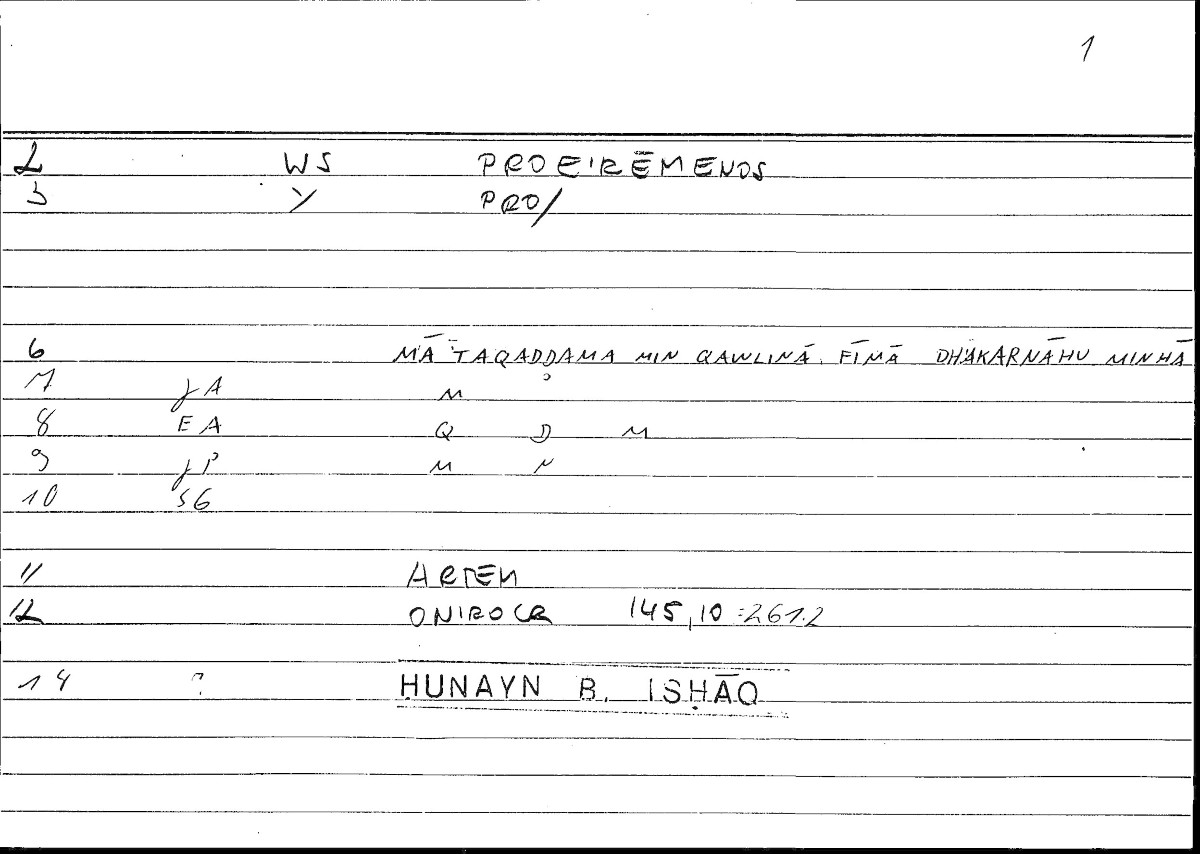 1
2 WS PROEIRĒMENOS
3 Y PRO/
6 MĀ TAQADDAMA MIN QAWLINĀ FĪMĀ DHAKARNĀHU MINHĀ
7 JA M
8 EA Q D M
9 JP M N
10 SG
11 ARTEM
12 ONIROCR 145,10 = 261.2
14 ? ḤUNAYN B. ISḤĀQ